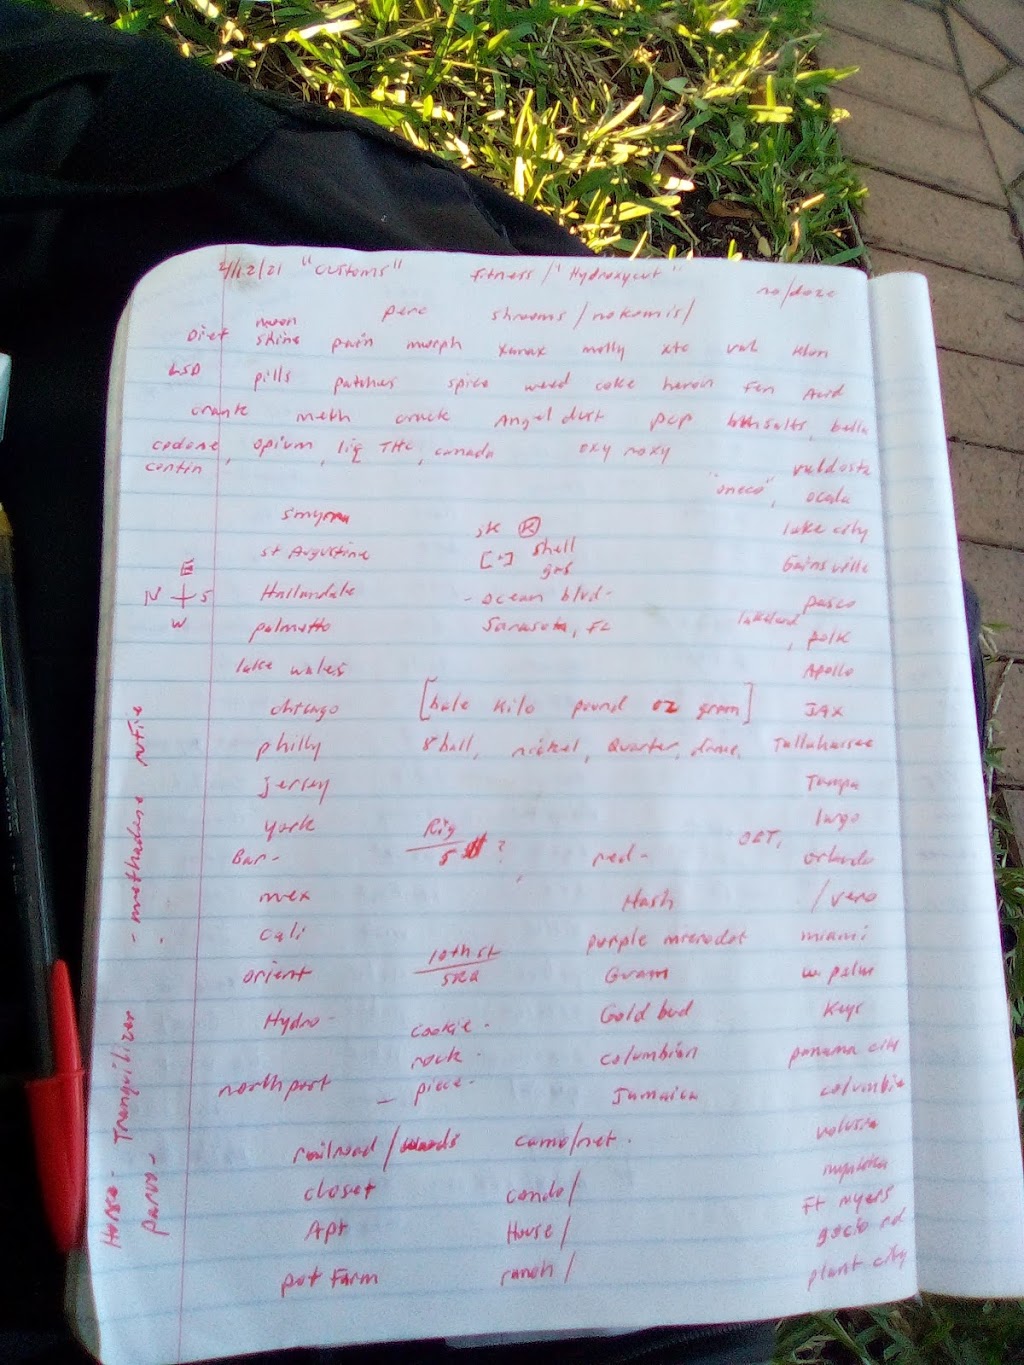 4/12/21 "Customs" fitness/"Hydroxycut" no/doze
perc shrooms/nokomis/
Diet moon shine pain morph xanax molly xtc val klon
LSD pills patches spice weed coke heroin Fen Acid
crank meth crack Angel dust pcp bthsalts, bella
codone, opium, liq THC, canada oxy roxy
contin valdosta
"oneco", ocala
smyrna sk Ⓚ lake city
st Augustine [·] shell gas Gainsville
III
IV S
w
Hallandale - ocean blvd- pasco
palmetto Sarasota, FL lakeland, polk
lake wales Apollo
chicago [bale kilo pound oz gram] JAX
philly 8 ball, nickel, Quarter, dime, Tallahassee
jersey Tampa
york Rig largo
Bar- 5 ? red- orlando
mex Hash /vero
cali purple microdot miami
orient 10th st Guam w. palm
SRQ
Hydro- cookie- Gold bud Keys
rock- columbian panama city
north port - piece- Jamaica columbia
railroad/ camo/net. volusia
closet condo/
Apt House/ Ft myers
gocio rd
pot Farm ranch/ plant city
Horse- Tranquilizer - methadone
parvo-